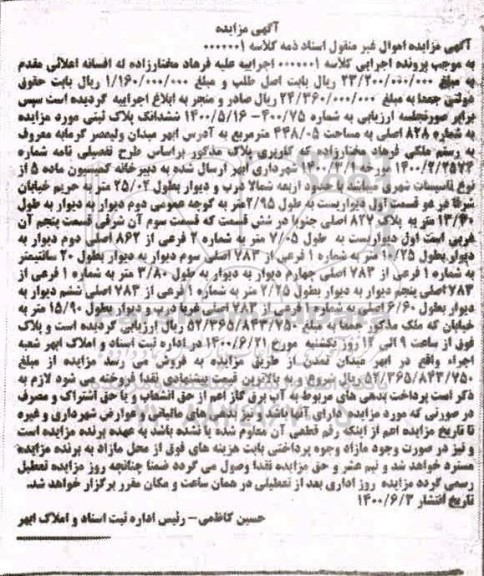 آگهی مزایده
آگهی مزایده اموال غیر منقول اسناد ذمه کلاسه ۰۰۰۰۰۰۱
به موجب پرونده اجرایی کلاسه ۰۰۰۰۰۰۱ اجراییه علیه فرهاد مختارزاده له افسانه اعلائی مقدم
به مبلغ ۲۳/۲۰۰/۰۰۰/۰۰۰ ریال بابت اصل طلب و مبلغ ۱/۱۶۰/۰۰۰/۰۰۰ ریال بابت حقوق
دولتی جمعا به مبلغ ۲۴/۳۶۰/۰۰۰/۰۰۰ ریال صادر و منجر به ابلاغ اجراییه گردیده است سپس
برابر صورتجلسه ارزیابی به شماره ۴۰۰/۷۵- ۱۴۰۰/۵/۱۶ ششدانگ پلاک ثبتی مورد مزایده
به شماره ۸۲۸ اصلی به مساحت ۴۴۸/۰۵ مترمربع به آدرس ابهر میدان ولیعصر گرمابه معروف
به رستم ملکی فرهاد مختارزاده که کاربری پلاک مذکور براساس طرح تفصیلی نامه شماره
۱۴۰۰/۲/۲۵۷۴ مورخه ۱۴۰۰/۳/۱ شهرداری ابهر ارسال شده به دبیرخانه کمیسیون ماده ۵ از
نوع تاسیسات شهری میباشد با حدود اربعه شمالا درب و دیوار بطول ۲۵/۰۲ متر به حریم خیابان
شرقا در دو قسمت اول دیواریست به طول ۲/۹۵ متر به کوچه عمومی دوم دیوار به دیوار به طول
۱۳/۴۰ متر به پلاک ۸۲۷ اصلی جنوبا در شش قسمت که قسمت سوم آن شرقی قسمت پنجم آن
غربی است اول دیواریست به طول ۷/۰۵ متر به شماره ۲ فرعی از ۸۶۲ اصلی دوم دیوار به
دیوار بطول ۱۰/۲۵ متر به شماره ۱ فرعی از ۷۸۳ اصلی سوم دیوار به دیوار بطول ۲۰ سانتیمتر
به شماره ۱ فرعی از ۷۸۳ اصلی چهارم دیوار به دیوار به طول ۳/۸۰ متر به شماره ۱ فرعی از
۷۸۳ اصلی پنجم دیوار به دیوار بطول ۲/۲۵ متر به شماره ۱ فرعی از ۷۸۳ اصلی ششم دیوار به
دیوار بطول ۶/۶۰ اصلی به شماره ۱ فرعی از ۷۸۳ اصلی غربا درب و دیوار بطول ۱۵/۹۰ متر به
خیابان که ملک مذکور جمعا به مبلغ ۵۲/۳۶۵/۸۴۳/۷۵۰ ریال ارزیابی گردیده است و پلاک
فوق از ساعت ۹ الی ۱۲ روز یکشنبه مورخ ۱۴۰۰/۶/۲۱ در اداره ثبت اسناد و املاک ابهر شعبه
اجراء واقع در ابهر میدان تمدن از طریق مزایده به فروش می رسد مزایده از مبلغ
۵۲/۳۶۵/۸۴۳/۷۵۰ ریال شروع و به بالاترین قیمت پیشنهادی نقدا فروخته می شود لازم به
ذکر است پرداخت بدهی های مربوط به آب برق گاز اعم از حق انشعاب و یا حق اشتراک و مصرف
در صورتی که مورد مزایده دارای آنها باشد و نیز بدهی های مالیاتی و عوارض شهرداری و غیره
تا تاریخ مزایده اعم از اینکه رقم قطعی آن معلوم شده یا نشده باشد به عهده برنده مزایده است
و نیز در صورت وجود مازاد وجوه پرداختی بابت هزینه های فوق از محل مازاد به برنده مزایده
مسترد خواهد شد و نیم عشر و حق مزایده نقدا وصول می گردد ضمنا چنانچه روز مزایده تعطیل
رسمی گردد مزایده روز اداری بعد از تعطیلی در همان ساعت و مکان مقرر برگزار خواهد شد.
تاریخ انتشار ۱۴۰۰/۶/۳
حسین کاظمی- رئیس اداره ثبت اسناد و املاک ابهر